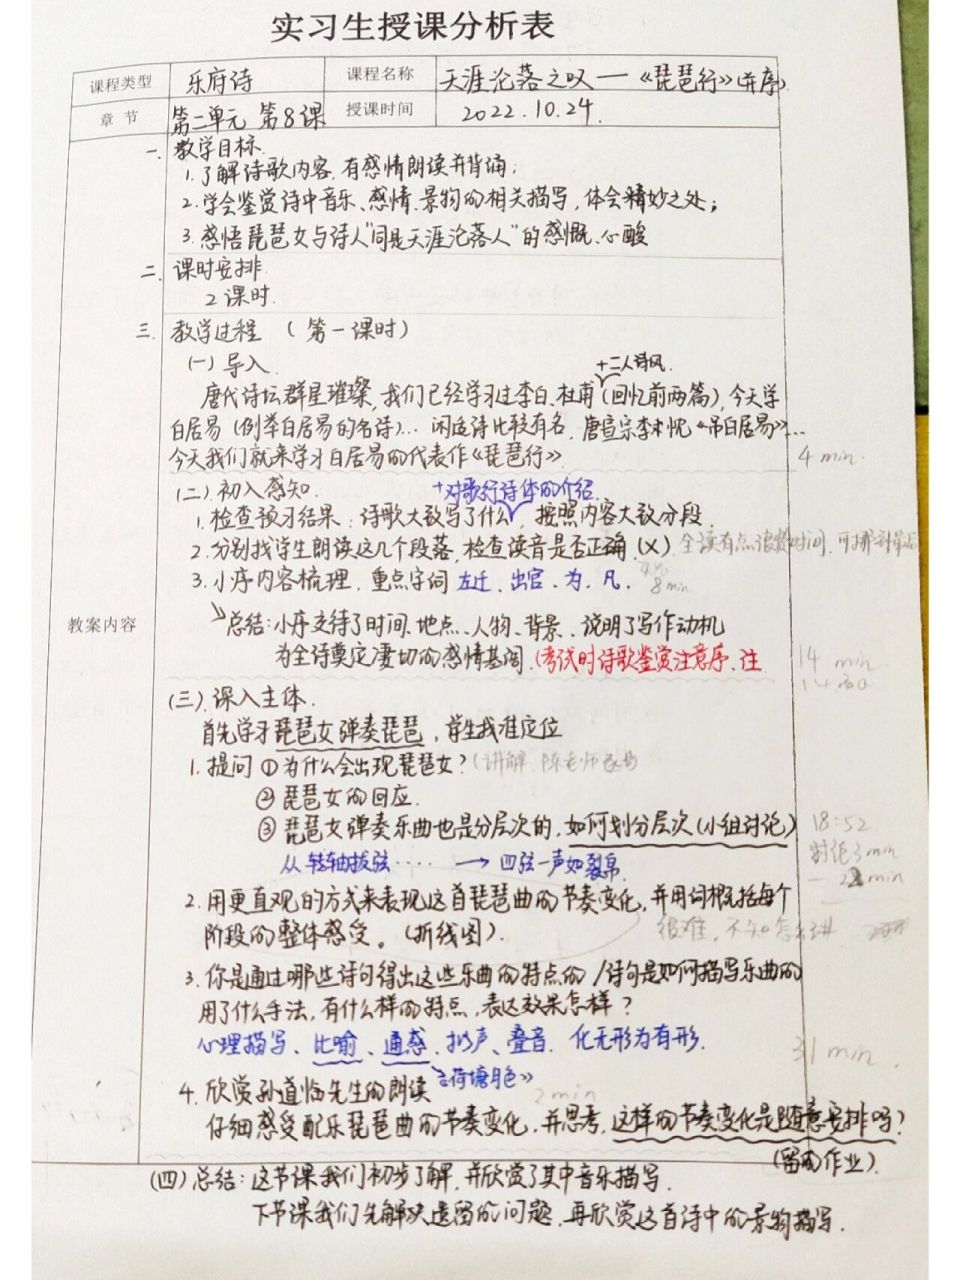 实习生授课分析表
课程类型 乐府诗 课程名称 天涯沦落之叹—《琵琶行》(并序)
章节 第二单元 第8课 授课时间 2022.10.24.
教案内容
一. 教学目标.
1.了解诗歌内容,有感情朗读并背诵;
2.学会鉴赏诗中音乐、感情、景物的相关描写,体会精妙之处;
3.感悟琵琶女与诗人"同是天涯沦落人"的感慨、心酸
二. 课时安排.
2课时.
三. 教学过程 (第一课时)
(一)导入.
+二人诗风.
唐代诗坛群星璀璨,我们已经学习过李白、杜甫(回忆前两篇),今天学
白居易(例举白居易的名诗)... 闲适诗比较有名,唐宣宗李忱《吊白居易》...
今天我们就来学习白居易的代表作《琵琶行》
4 min.
(二).初入感知. +对歌行诗体的介绍.
1.检查预习结果:诗歌大致写了什么,按照内容大致分段.
2.分别找学生朗读这几个段落,检查读音是否正确(X).全读有点浪费时间,可挪到
3.小序内容梳理,重点字词 左迁、出官、为、凡.
8 min
总结:小序交待了时间、地点、人物、背景、说明了写作动机
为全诗奠定凄切的感情基调.(考试时诗歌鉴赏注意序、注
14 min
(三).深入主体.
首先学习琵琶女弹奏琵琶,学生找准定位
1.提问 ①为什么会出现琵琶女?(讲解
②琵琶女的回应.
③琵琶女弹奏乐曲也是分层次的,如何划分层次(小组讨论)
18:52
讨论3min
从 转轴拨弦····→ 四弦一声如裂帛.
2.用更直观的方式来表现这首琵琶曲的节奏变化,并用词概括每个
阶段的整体感受。(折线图).
很难,不知怎么讲
3.你是通过哪些诗句得出这些乐曲的特点的/诗句是如何描写乐曲的
用了什么手法,有什么样的特点,表达效果怎样?
心理描写、比喻、通感、拟声、叠音. 化无形为有形.
31 min
4.欣赏孙道临先生的朗读 荷塘月色》
2min
仔细感受配乐琵琶曲的节奏变化,并思考,这样的节奏变化是随意安排吗?
(留为作业).
(四)总结:这节课我们初步了解,并欣赏了其中音乐描写.
下节课我们先解决遗留的问题,再欣赏这首诗中的景物描写.